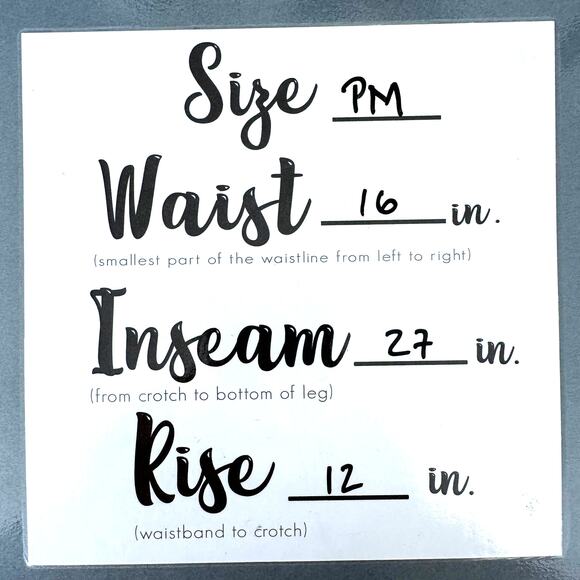 Size PM
Waist 16 in.
(smallest part of the waistline from left to right)
Inseam 27 in.
(from crotch to bottom of leg)
Rise 12 in.
(waistband to crotch)